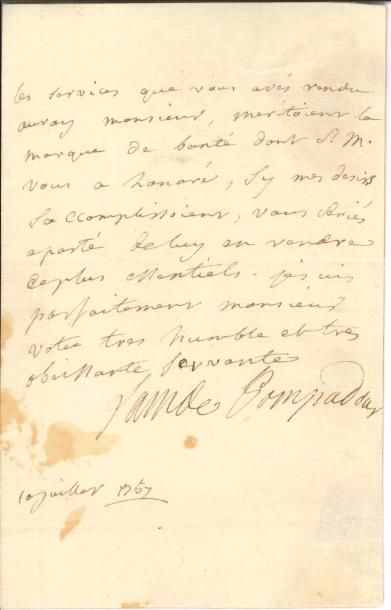 les services que vous avés rendu
au roy monsieur, meritoient la
marque de bonté dont S. M.
vous a honoré, sy mes desirs
saccomplissoient, vous seriés
aporté de luy en rendre
de plus essentiels. je suis
parfaitement monsieur
votre tres humble et tres
obeissante servante
Pompadour
10 juillet 1757